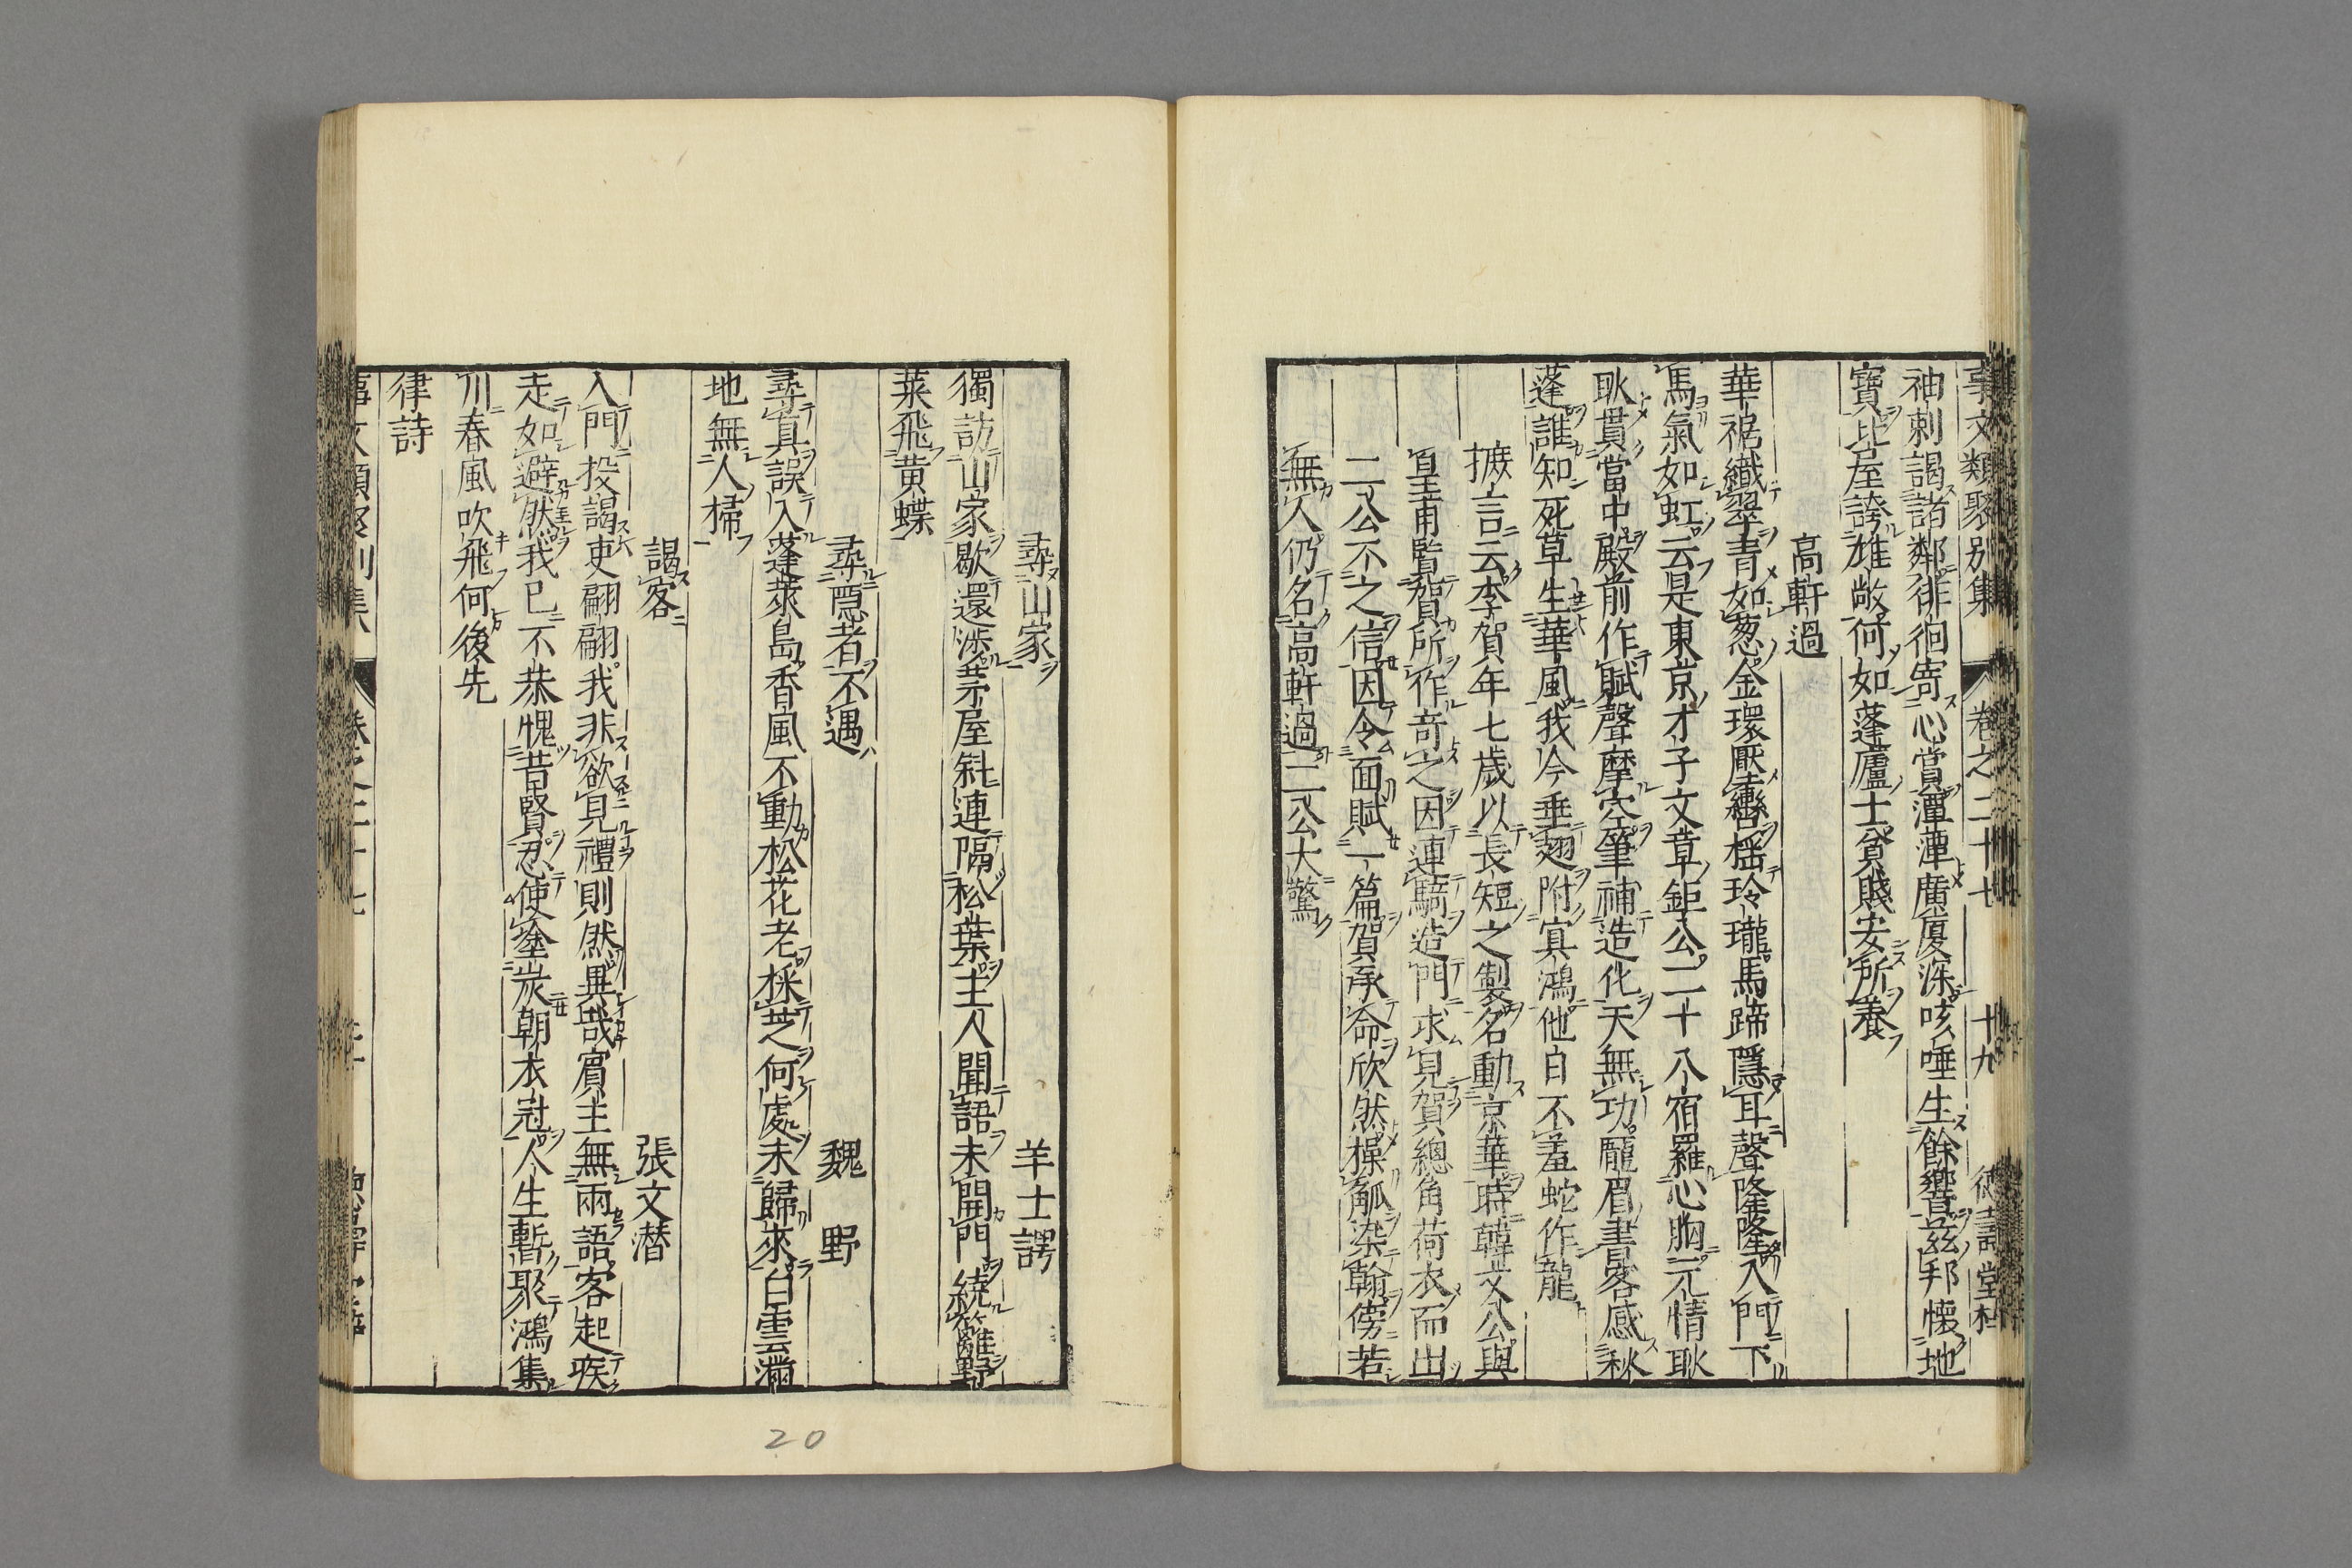 事文類聚別集 卷之二十七 十九 德壽堂梓
袖刺謁諸鄰徘徊寄心賞潭潭廣厦深咳唾生餘響兹邦懷地
寶比屋誇雄敞何如蓬廬士貧賤安所養
高軒過
華裾織翠青如葱金環壓轡揺玲瓏馬蹄隱耳聲隆隆入門下
馬氣如虹云是東京才子文章鉅公二十八宿羅心胸元情耿
耿貫當中殿前作賦聲摩空筆補造化天無功龎眉書客感秋
蓬誰知死草生華風我今垂翅附冥鴻他白不羞蛇作龍
摭言云李賀年七歲以長短之製名動京華時韓文公與
皇甫覧賀所作竒之因連騎造門求見賀總角荷衣而出
二公不之信因令面賦一篇賀承命欣然操觚染翰傍若
無人仍名高軒過二公大驚
尋山家 羊士諤
獨訪山家歇還渉茅屋斜連隔松葉主人聞語未開門繞籬野
菜飛黄蝶
尋隠者不遇 魏野
尋真誤入蓬萊島香風不動松花老採芝何處未歸來白雲滿
地無人掃
謁客 張文潜
入門投謁吏翩翩我非欲見禮則然異哉賓主無兩語客起疾
走如避然我已不恭愧昔賢忍使塗炭朝衣冠人生暫聚鴻集
川春風吹飛何後先
律詩
20